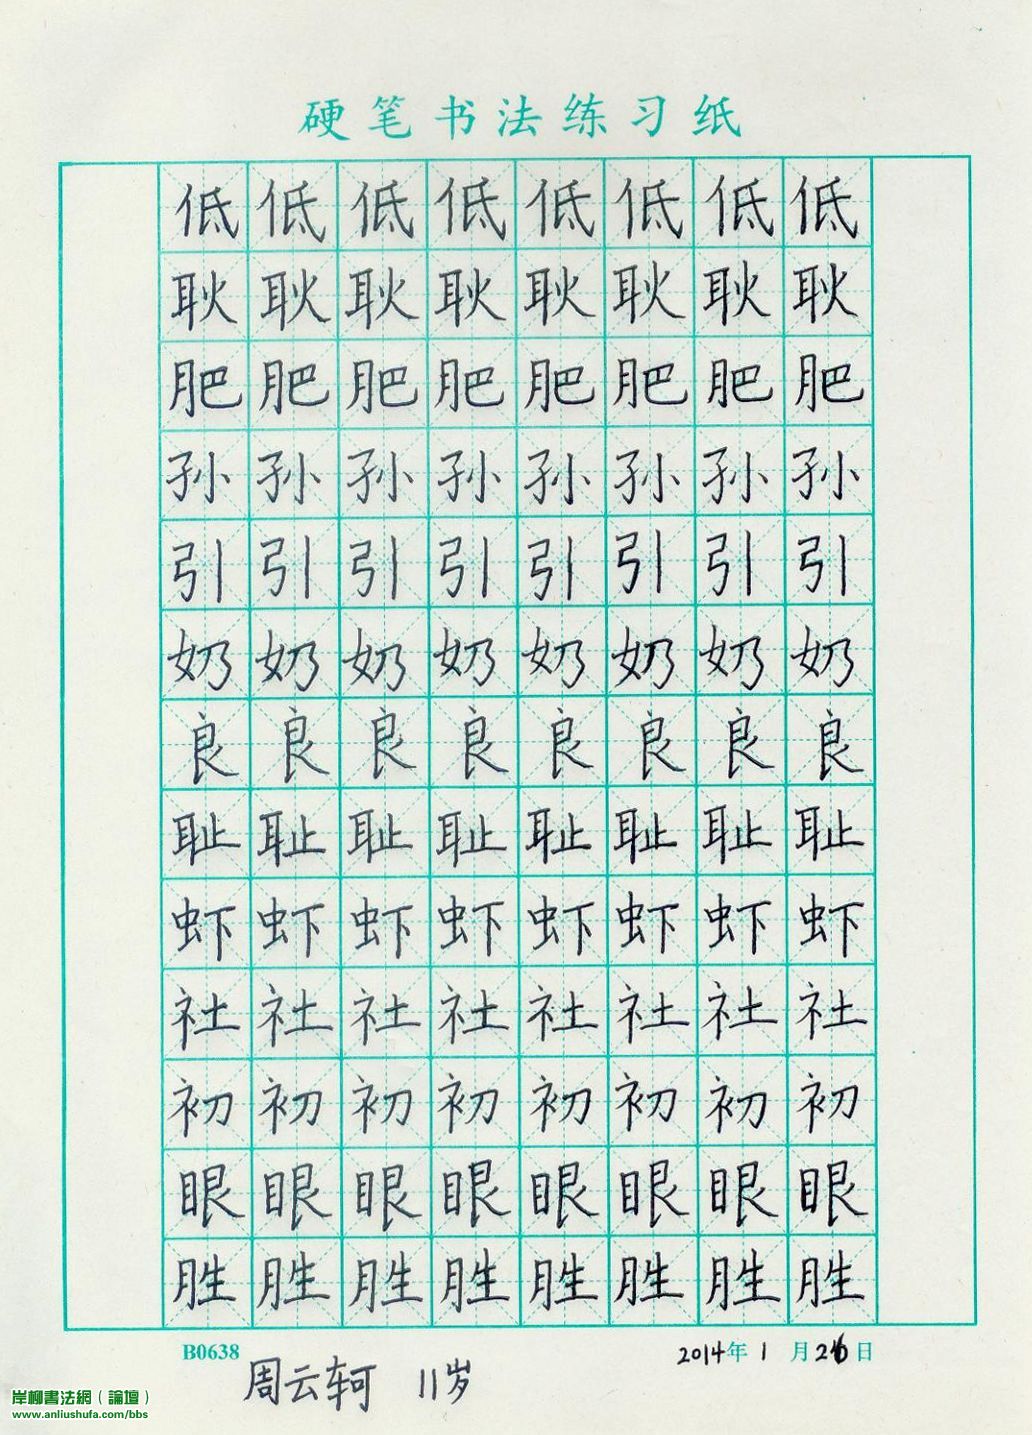 硬笔书法练习纸
低低低低低低低低
耿耿耿耿耿耿耿耿
肥肥肥肥肥肥肥肥
孙孙孙孙孙孙孙孙
引引引引引引引引
奶奶奶奶奶奶奶奶
良良良良良良良良
耻耻耻耻耻耻耻耻
虾虾虾虾虾虾虾虾
社社社社社社社社
初初初初初初初初
眼眼眼眼眼眼眼眼
胜胜胜胜胜胜胜胜
B0638 2014年1月26日
周云轲 11岁
岸柳書法網（論壇）
www.anliushufa.com/bbs